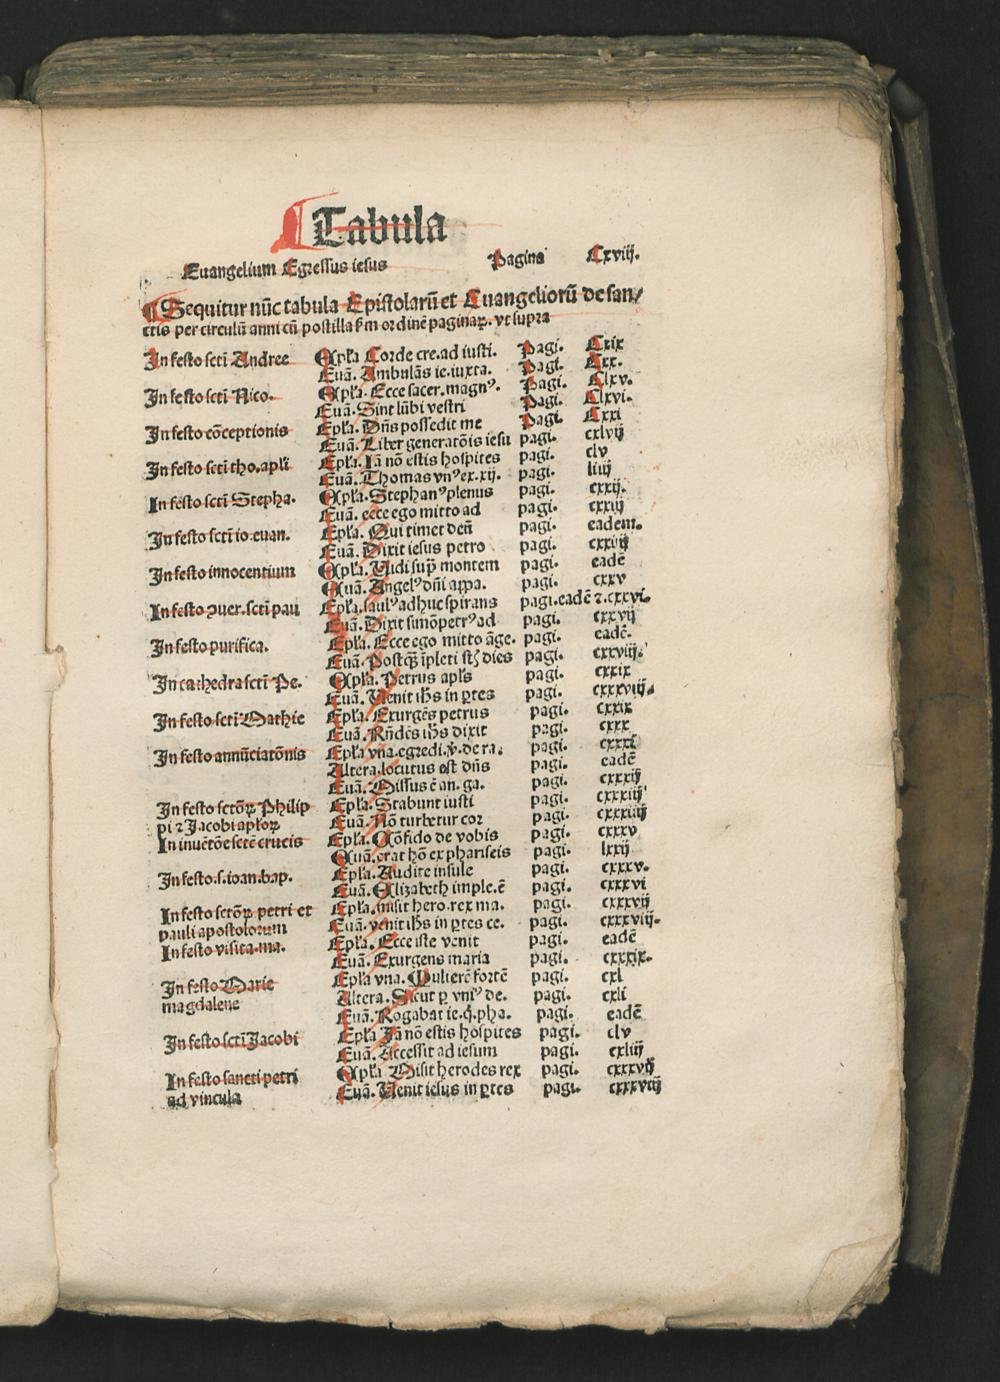 Tabula
Euangelium Egressus iesus Pagina Cxviij.
¶ Sequitur nūc tabula Epistolarū et Euangeliorū de san/
ctis per circulū anni cū postilla ẜm ordinē paginaꝝ. vt supra
In festo scti Andree Epĺa Corde cre.ad iusti. Pagi. Cxix
Euā. Ambulās ie.iuxta. Pagi. Cxx.
In festo scti Nico. Epĺa. Ecce sacer.magnꝰ. Pagi. Clxv.
Euā. Sint lūbi vestri Pagi. Clxvi.
In festo cōceptionis Epĺa. Dn̄s possedit me Pagi. Cxxi
Euā. Liber generatōis iesu pagi. cxlvij
In festo scti tho.apĺi Epĺa. Iā nō estis hospites pagi. clv
Euā. Thomas vnꝰ ex.xij. pagi. liiij
In festo scti Stepha. Epĺa. Stephanꝰ plenus pagi. cxxij.
Euā. ecce ego mitto ad pagi. cxxiij
In festo scti io.euan. Epĺa. Qui timet deū pagi. eadem.
Euā. Dixit iesus petro pagi. cxxviij
In festo innocentium Epĺa. Uidi suꝑ montem pagi. eadē
Euā. Angelꝰ dn̄i appa. pagi. cxxv
In festo ꝯuer.scti pau Epĺa. saulꝰ adhuc spirans pagi. eadē ⁊.cxxvi.
Euā. Dixit simō petrꝰ ad pagi. cxxvij
In festo purifica. Epĺa. Ecce ego mitto āge. pagi. eadē.
Euā. Postꝗ̄ īpleti st̄ dies pagi. cxxviij.
In cathedra scti Pe. Epĺa. Petrus apĺs pagi. cxxix
Euā. Uenit ih̄s in ꝑtes pagi. cxxxviij.
In festo scti Mathie Epĺa. Exurgēs petrus pagi. cxxix
Euā. Rn̄dēs ih̄s dixit pagi. cxxx
In festo annūciatōnis Epĺa vna.egredi.v̄.de ra. pagi. cxxxi
Altera.locutus est dn̄s pagi. eadē
Euā. Missus ē an.ga. pagi. cxxxij
In festo sctōꝝ Philip Epĺa. Stabunt iusti pagi. cxxxiij
pi ⁊ Jacobi apĺoꝝ Euā. Nō turbetur cor pagi. cxxxiiij
In inuētōe sctē crucis Epĺa. Cōfido de vobis pagi. cxxxv
Euā. erat hō ex phariseis pagi. lxxij
In festo.s.ioan.bap. Epĺa. Audite insule pagi. cxxxv.
Euā. Elizabeth imple.ē pagi. cxxxvi
In festo sctōꝝ petri et Epĺa. misit hero.rex ma. pagi. cxxxvij
pauli apostolorum Euā. venit ih̄s in ꝑtes ce. pagi. cxxxviij.
In festo visita.ma. Epĺa. Ecce iste venit pagi. eadē
Euā. Exurgens maria pagi. cxxxix.
In festo Marie Epĺa vna. Mulierē fortē pagi. cxl
magdalene Altera. Sicut ꝑ vniꝰ de. pagi. cxli
Euā. Rogabat ie.q̄.pha. pagi. eadē
In festo scti Jacobi Epĺa Iā nō estis hospites pagi. clv
Euā. Accessit ad iesum pagi. cxliij
In festo sancti petri Epĺa Misit herodes rex pagi. cxxxvij
ad vincula Euā. Uenit iesus in ꝑtes pagi. cxxxviij